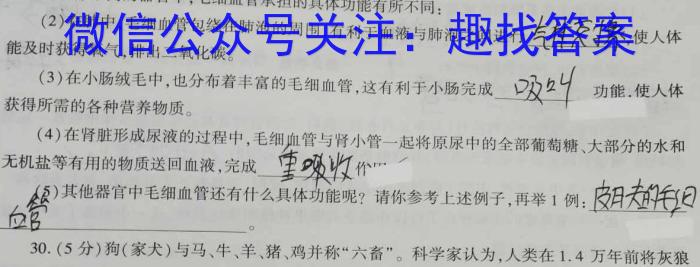 毛细血管承担的具体功能有所不同:
(2)在肺中,毛细血管包绕在肺泡的周围,有利于血液与肺泡 气体交换 ,使人体
微信公众号关注:趣找答案
能及时获得氧气,排出二氧化碳。
(3)在小肠绒毛中,也分布着丰富的毛细血管,这有利于小肠完成 吸收 功能,使人体
获得所需的各种营养物质。
(4)在肾脏形成尿液的过程中,毛细血管与肾小管一起将原尿中的全部葡萄糖、大部分的水和
无机盐等有用的物质送回血液,完成 重吸收 作用
(5)其他器官中毛细血管还有什么具体功能呢?请你参考上述例子,再举1例: 皮肤的毛细
血管 。
30.(5分)狗(家犬)与马、牛、羊、猪、鸡并称“六畜”。科学家认为,人类在1.4万年前将灰狼